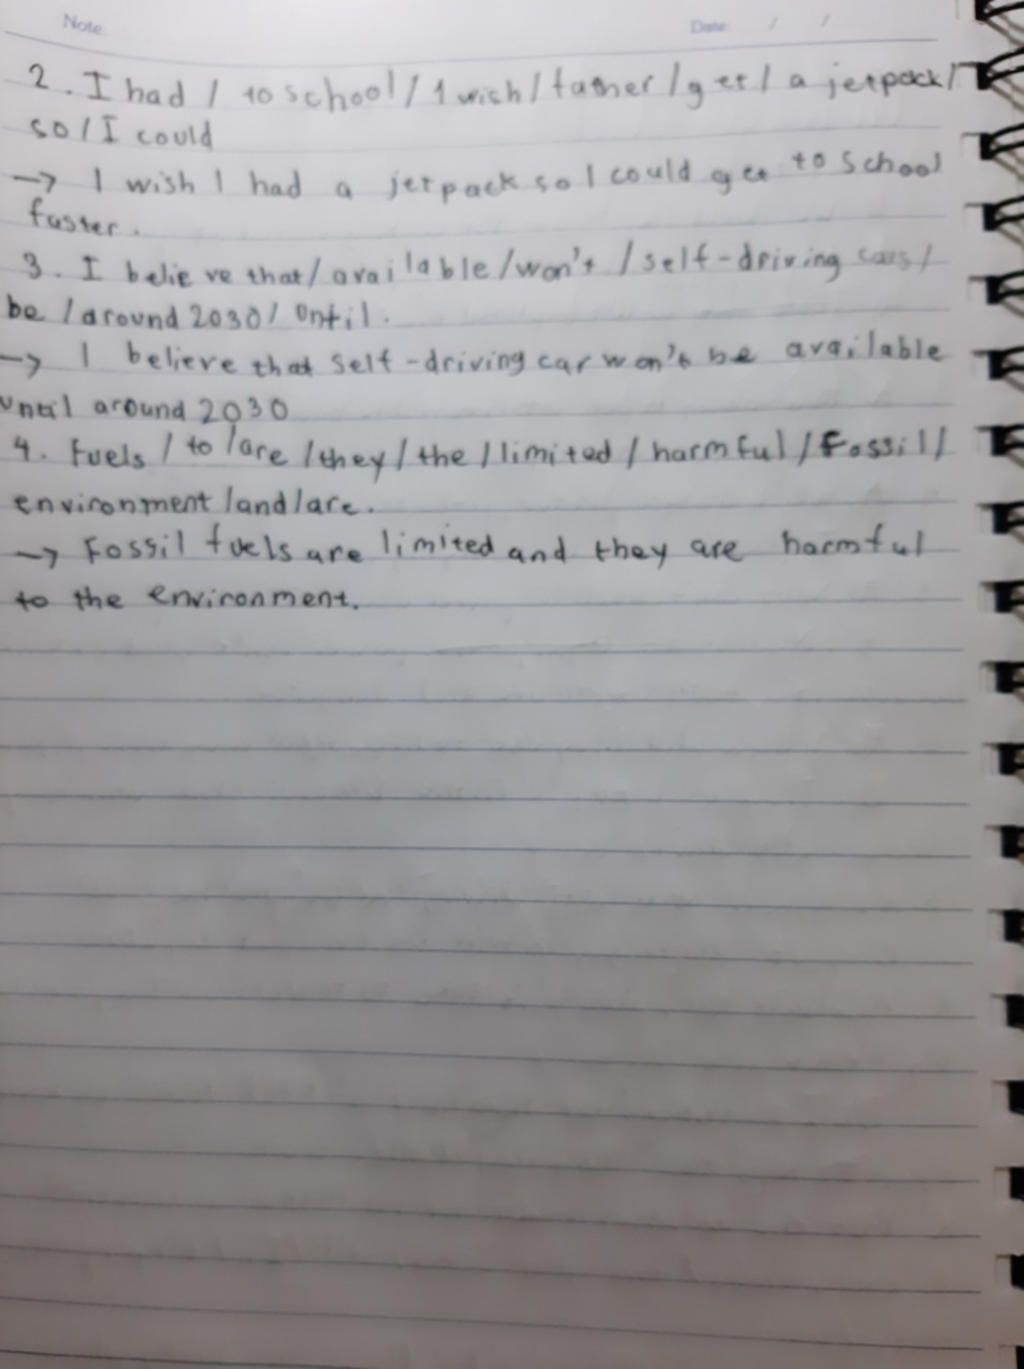 Note:
Date: / /
2. I had / to school / I wish / father / get / a jetpack /
so / I could
→ I wish I had a jetpack so I could get to school
faster.
3. I believe that / available / won't / self-driving cars /
be / around 2030 / Until.
→ I believe that self-driving car won't be available
until around 2030
4. fuels / to / are / they / the / limited / harmful / Fossil /
environment / and / are.
→ Fossil fuels are limited and they are harmful
to the environment.